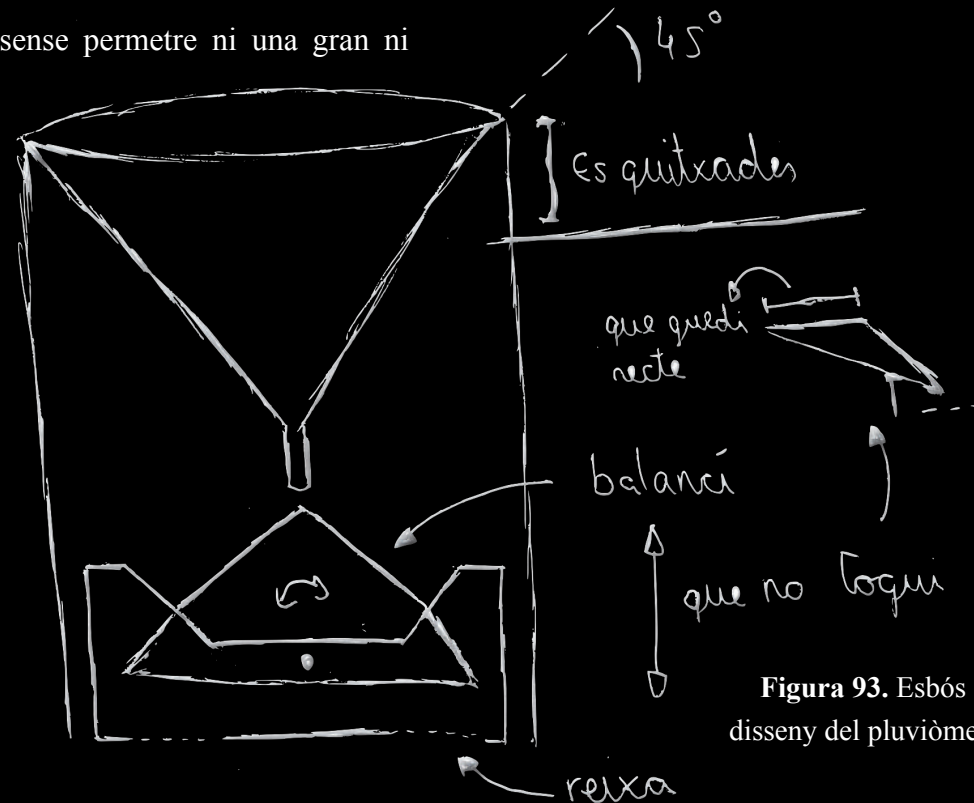 sense permetre ni una gran ni
45°
Esquitxades
que quedi
recte
balancí
que no toqui
Figura 93. Esbós
disseny del pluviòme
reixa